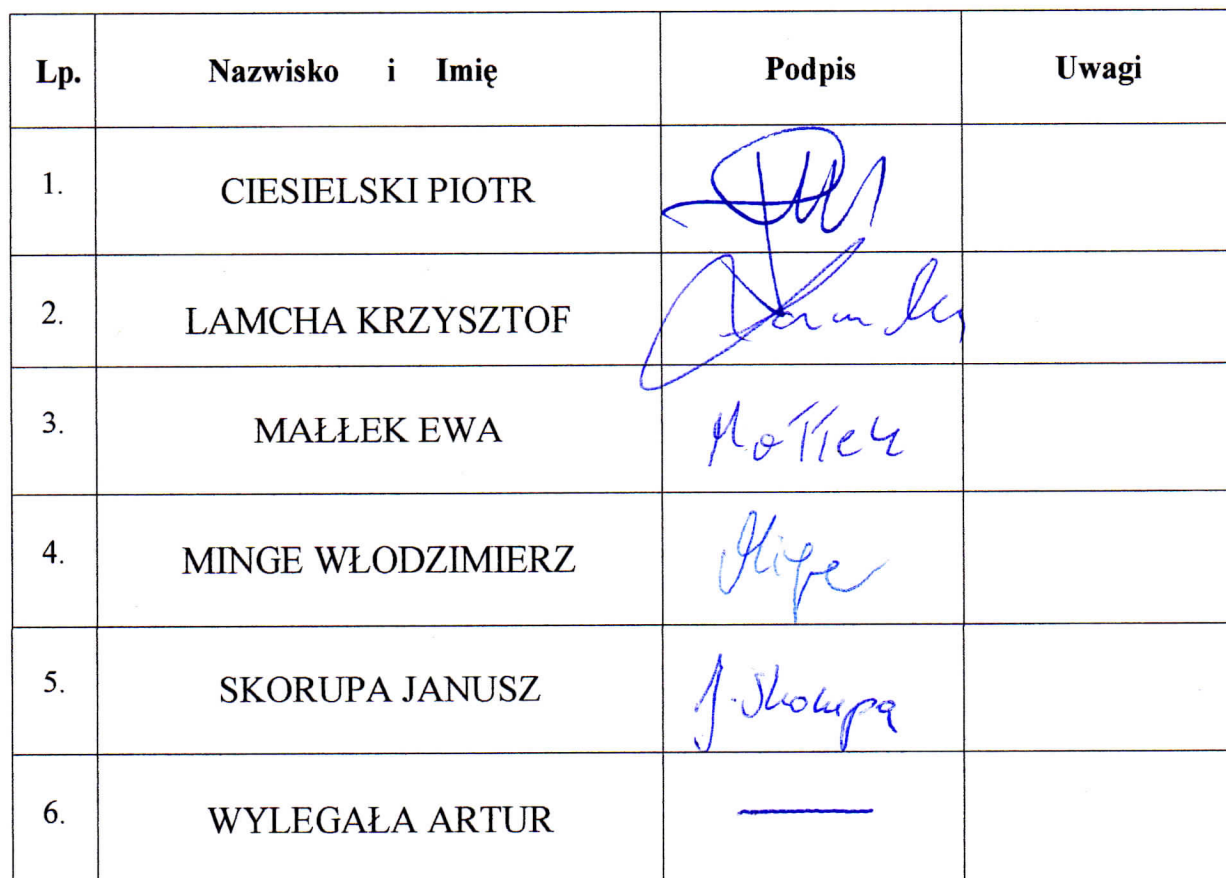 Lp. Nazwisko i Imię Podpis Uwagi
1. CIESIELSKI PIOTR
2. LAMCHA KRZYSZTOF
3. MAŁŁEK EWA Małłek
4. MINGE WŁODZIMIERZ Minge
5. SKORUPA JANUSZ J. Skorupa
6. WYLEGAŁA ARTUR —